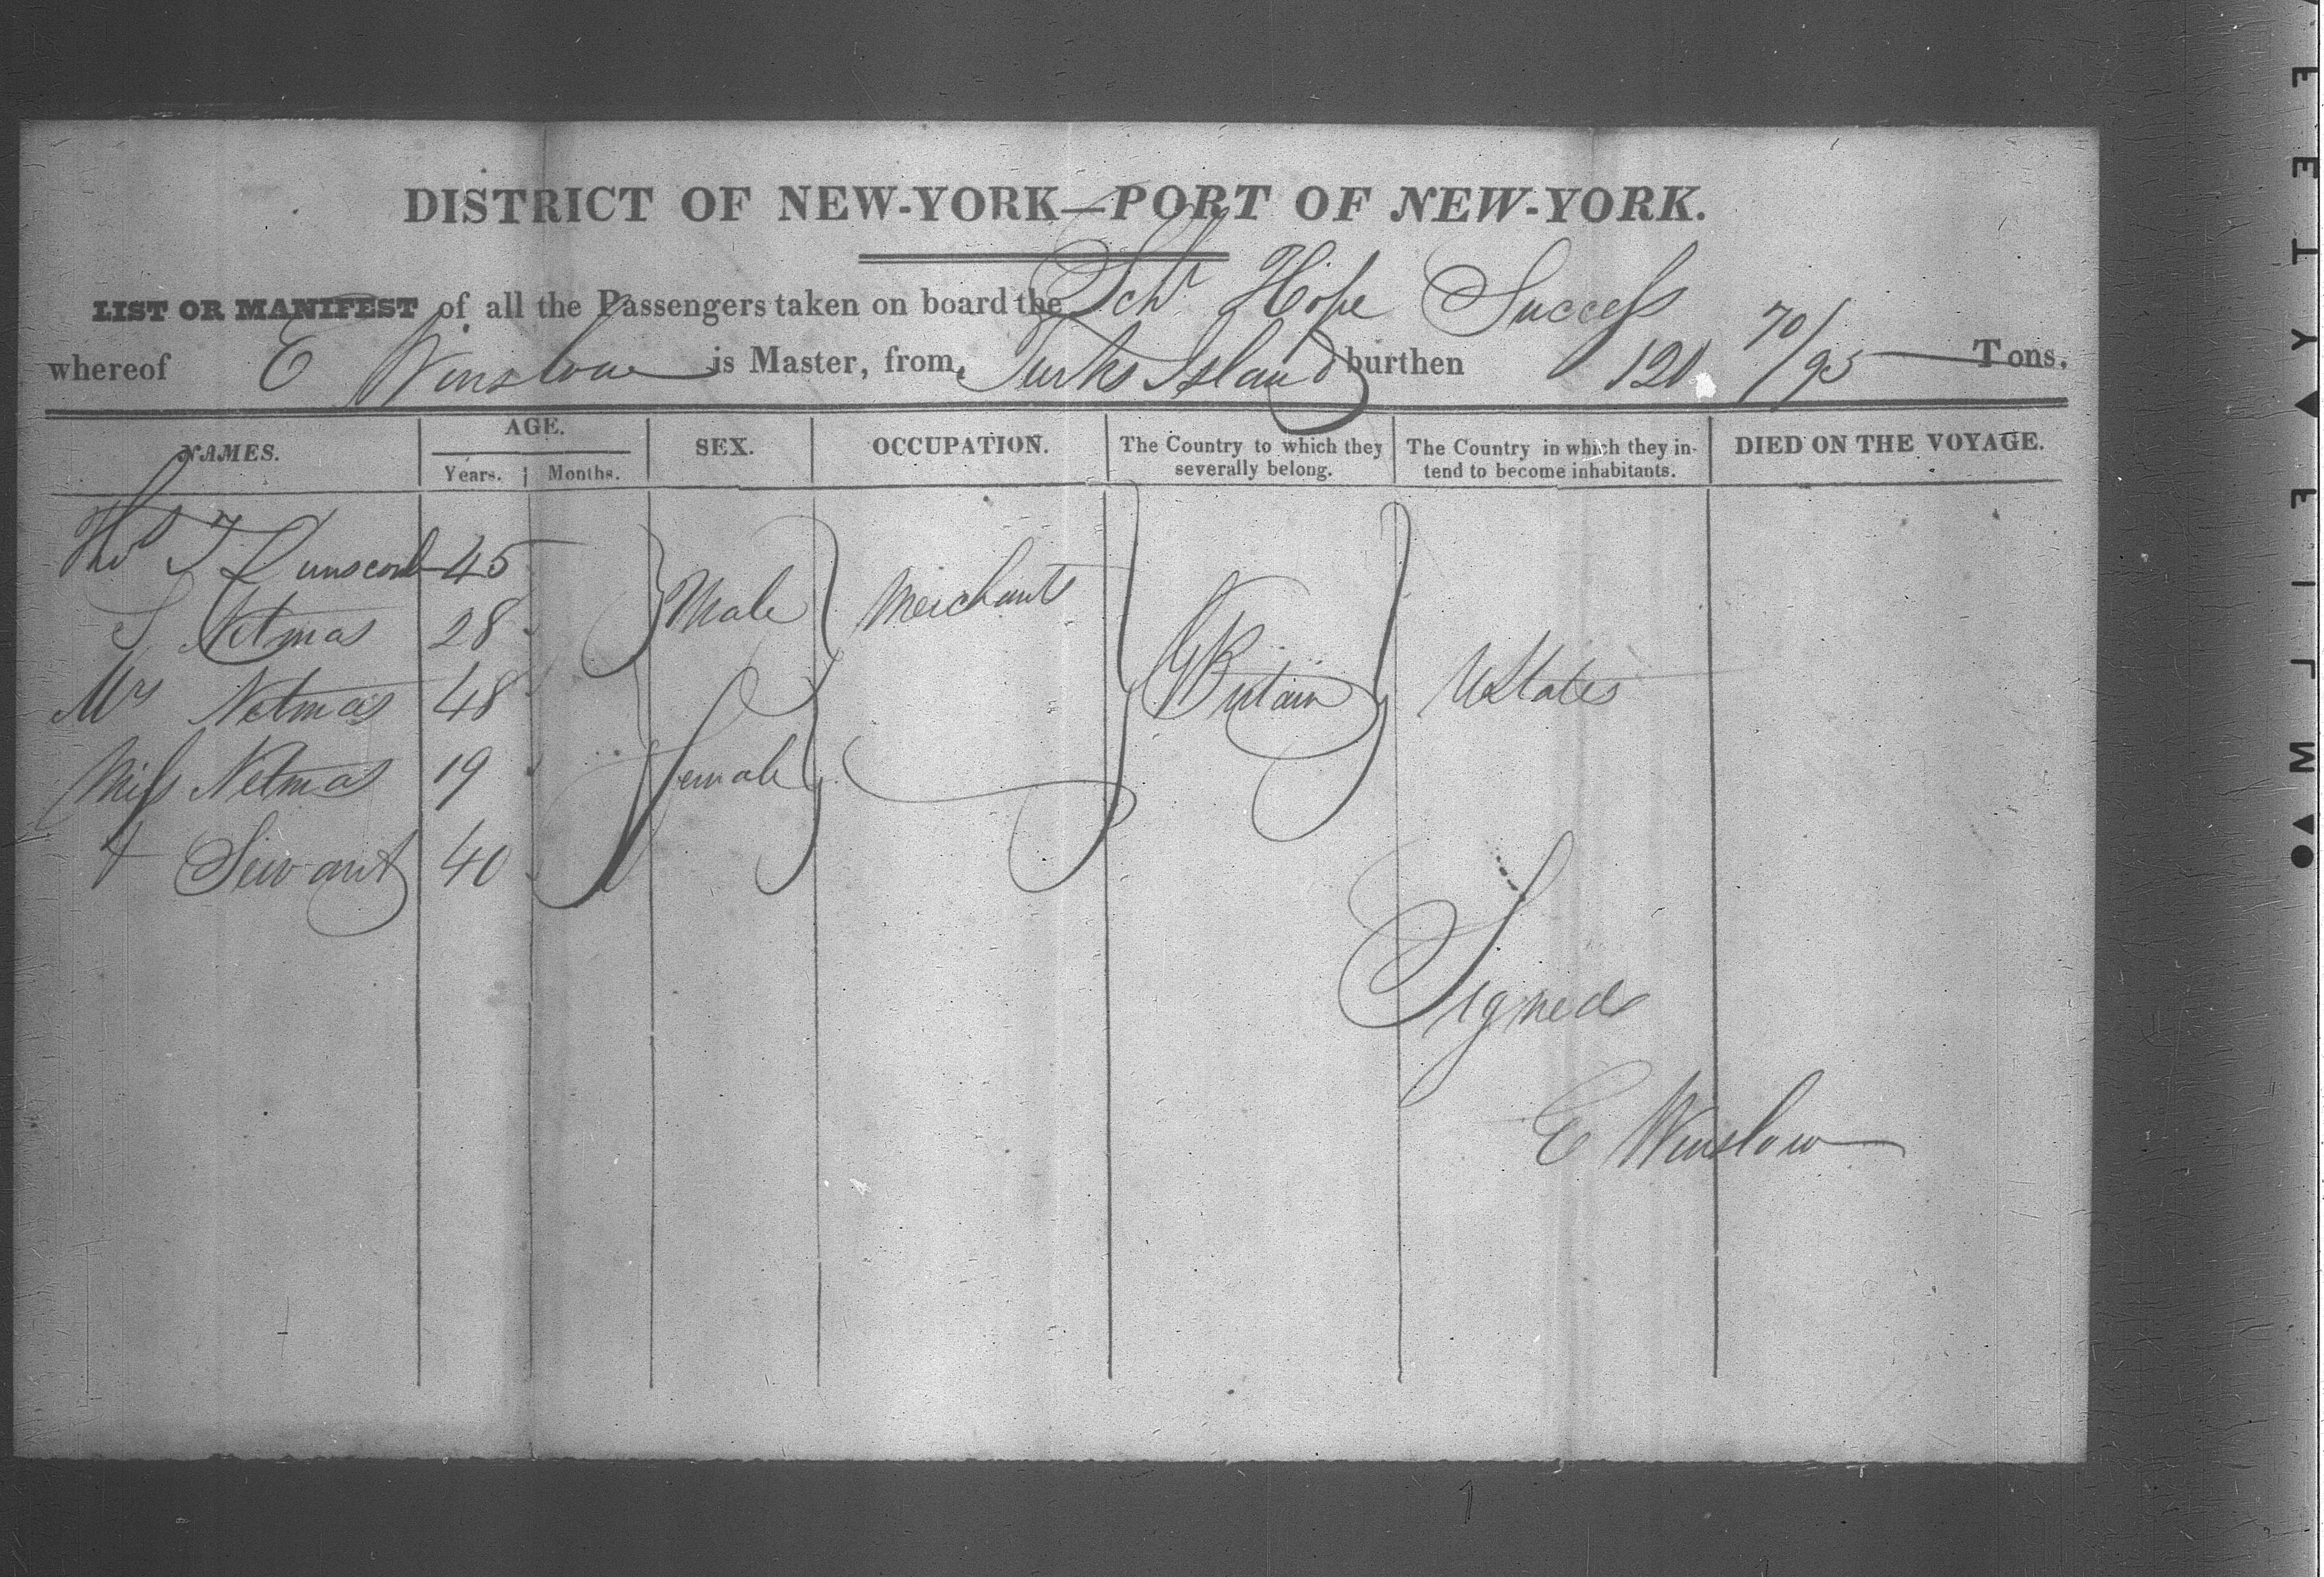 DISTRICT OF NEW-YORK—PORT OF NEW-YORK.
LIST OR MANIFEST of all the Passengers taken on board the Schr Hope Success
whereof E Winslow is Master, from, Turks Island burthen 120 70/95 Tons.
NAMES. AGE. SEX. OCCUPATION. The Country to which they severally belong. The Country in which they in- tend to become inhabitants. DIED ON THE VOYAGE.
Years. Months.
Thos T Dunscomb 45
S Netmas 28 Male Merchants
Mrs Netmas 48 G Britain UStates
Miss Netmas 19 Female
+ Servant 40
Signed
E Winslow